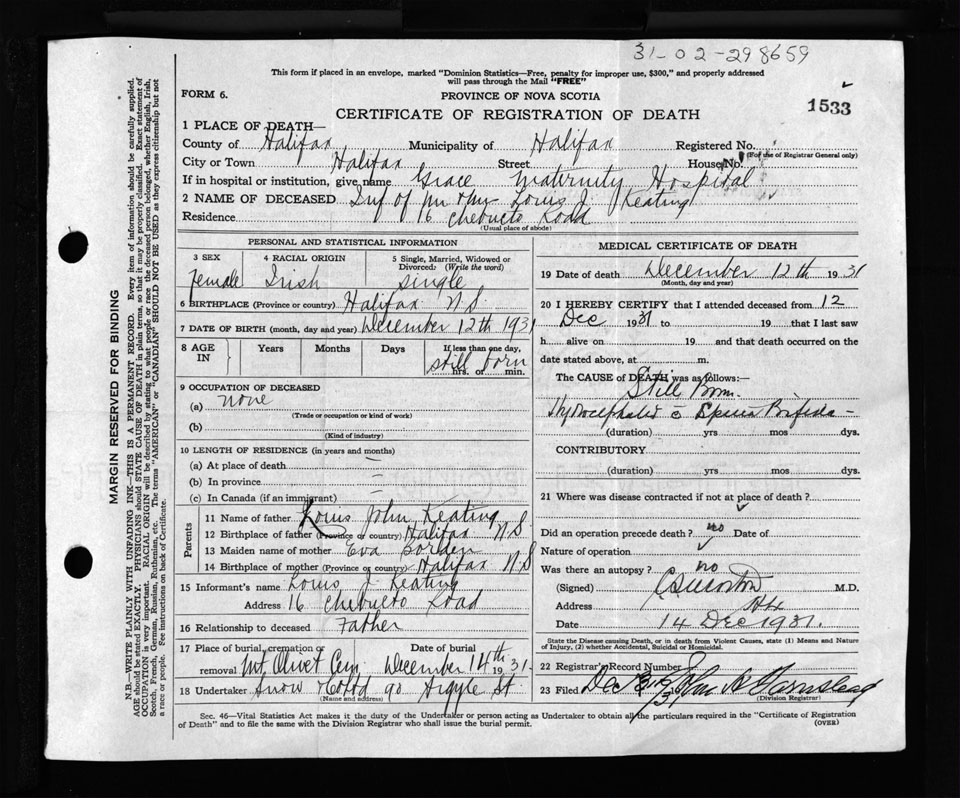 31-02-298659
This form if placed in an envelope, marked "Dominion Statistics—Free, penalty for improper use, $300," and properly addressed
will pass through the Mail "FREE"
FORM 6.
PROVINCE OF NOVA SCOTIA
1533
CERTIFICATE OF REGISTRATION OF DEATH
1 PLACE OF DEATH—
County of Halifax Municipality of Halifax Registered No.
(For use of Registrar General only)
City or Town Halifax Street House No.
If in hospital or institution, give name Grace Maternity Hospital
2 NAME OF DECEASED Inf of Mr & Mrs Louis J. Keating
Residence 16 Chebucto Road
(Usual place of abode)
PERSONAL AND STATISTICAL INFORMATION
3 SEX 4 RACIAL ORIGIN 5 Single, Married, Widowed or
Divorced: (Write the word)
Female Irish Single
6 BIRTHPLACE (Province or country) Halifax N.S.
7 DATE OF BIRTH (month, day and year) December 12th 1931
8 AGE IN Years Months Days If less than one day,
still born
hrs. or min.
9 OCCUPATION OF DECEASED
(a) none
(Trade or occupation or kind of work)
(b)
(Kind of industry)
10 LENGTH OF RESIDENCE (in years and months)
(a) At place of death —
(b) In province —
(c) In Canada (if an immigrant)
Parents
11 Name of father Louis John Keating
12 Birthplace of father (Province or country) Halifax N.S
13 Maiden name of mother Eva Borden
14 Birthplace of mother (Province or country) Halifax N.S
15 Informant's name Louis J. Keating
Address 16 Chebucto Road
16 Relationship to deceased Father
17 Place of burial, cremation or Date of burial
removal Mt Olivet Cem. December 14th 1931.
18 Undertaker Snow & Co Ltd 90 Argyle St.
(Name and address)
MEDICAL CERTIFICATE OF DEATH
19 Date of death December 12th 1931
(Month, day and year)
20 I HEREBY CERTIFY that I attended deceased from 12
Dec 1931 to 19 that I last saw
h alive on 19 and that death occurred on the
date stated above, at m.
The CAUSE of DEATH was as follows:—
Still Born.
Hydrocephalis c̄ Spina Bifida —
(duration) yrs mos dys.
CONTRIBUTORY
(duration) yrs mos dys.
21 Where was disease contracted if not at place of death?
Did an operation precede death? no Date of
Nature of operation
Was there an autopsy? no
(Signed) M.D.
Address Hfx
Date 14 Dec 1931.
State the Disease causing Death, or in death from Violent Causes, state (1) Means and Nature
of Injury, (2) whether Accidental, Suicidal or Homicidal.
22 Registrar's Record Number
23 Filed Dec
(Division Registrar)
Sec. 46—Vital Statistics Act makes it the duty of the Undertaker or person acting as Undertaker to obtain all the particulars required in the "Certificate of Registration
of Death" and to file the same with the Division Registrar who shall issue the burial permit.
(OVER)
MARGIN RESERVED FOR BINDING
N.B.—WRITE PLAINLY WITH UNFADING INK—THIS IS A PERMANENT RECORD. Every item of information should be carefully supplied.
AGE should be stated EXACTLY. PHYSICIANS should STATE CAUSE OF DEATH in plain terms, so that it may be properly classified. Exact statement of
OCCUPATION is very important. RACIAL ORIGIN will be described by stating to what people or race the deceased person belonged, whether English, Irish,
Scotch, French, German, Russian, Ruthenian, etc. The terms "AMERICAN" or "CANADIAN" SHOULD NOT BE USED as they express citizenship but not
a race or people. See instructions on back of Certificate.